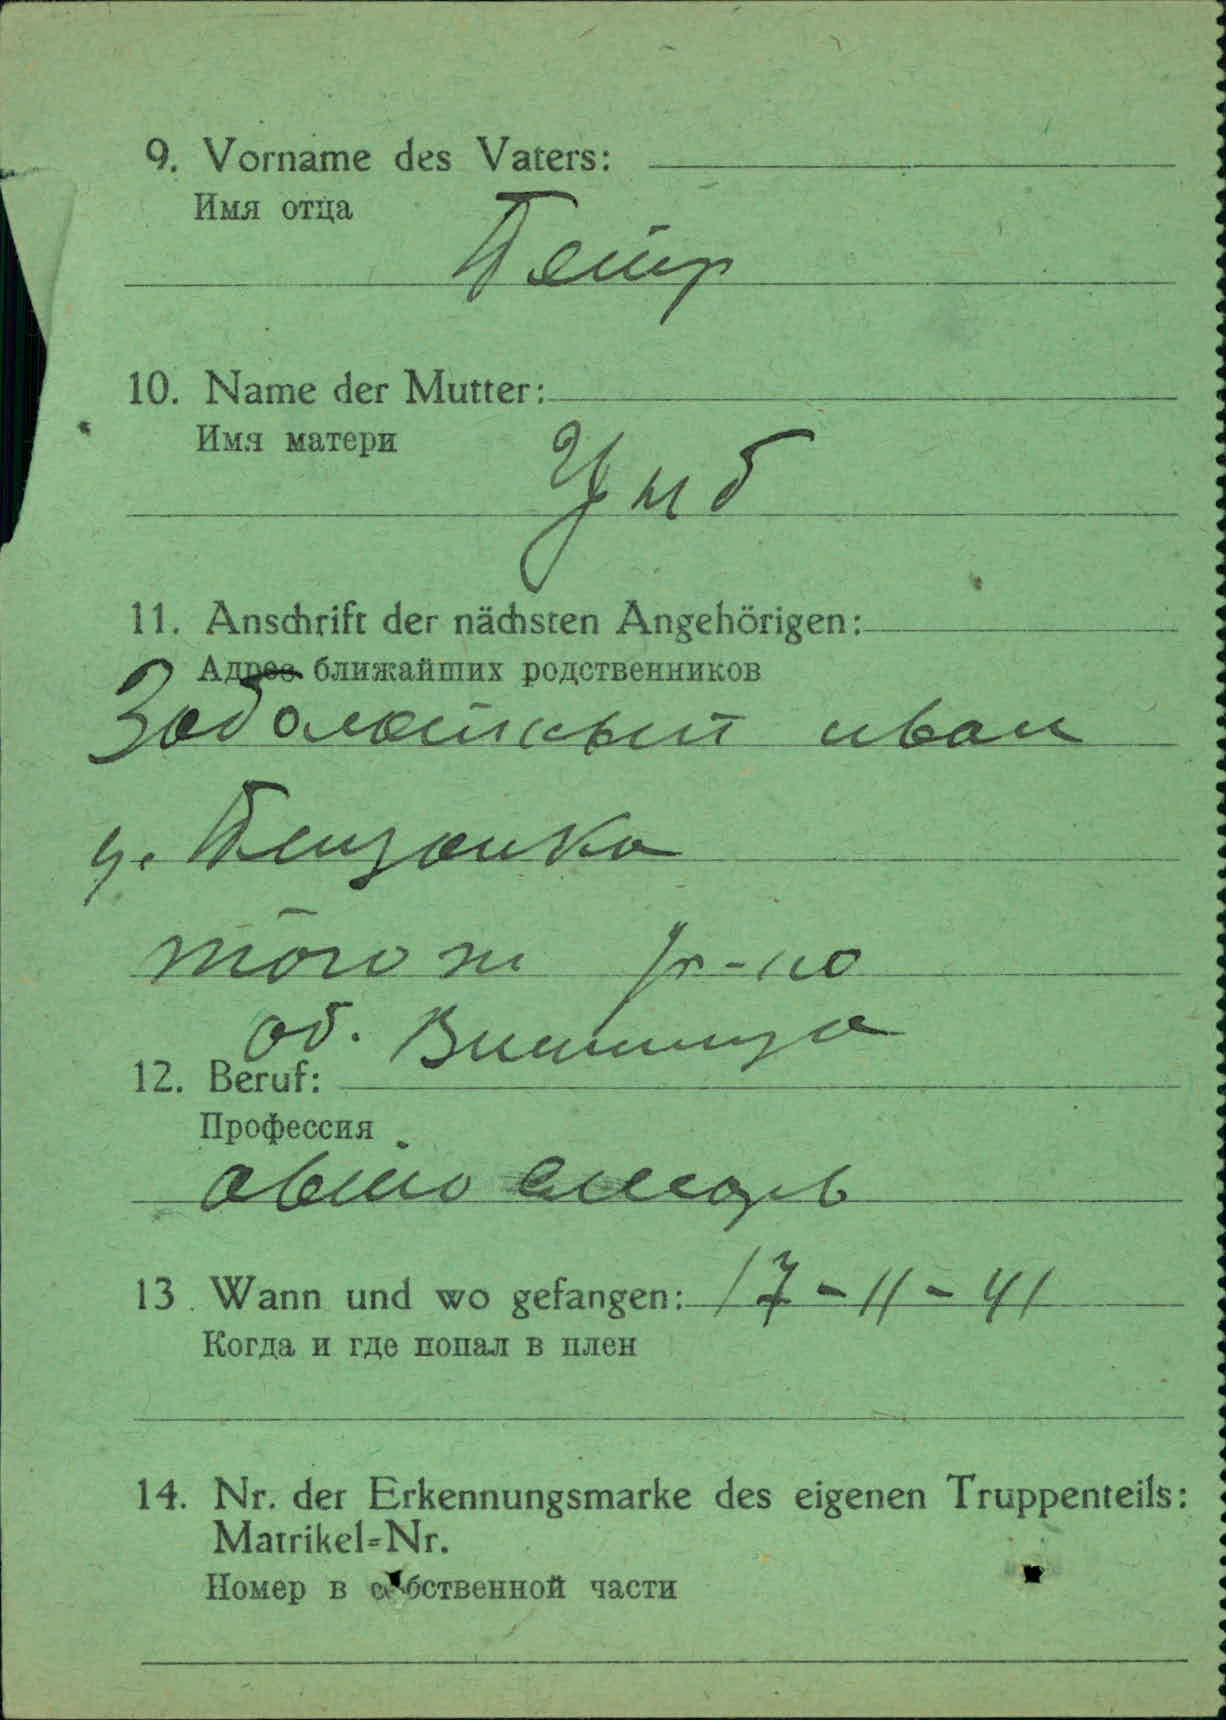 9. Vorname des Vaters:
Имя отца
Петр
10. Name der Mutter:
Имя матери
Цыб
11. Anschrift der nächsten Angehörigen:
Адрес ближайших родственников
Заболотный иван
тогож р-но
об. Винница
12. Beruf:
Профессия
авто слесарь
13. Wann und wo gefangen: 17-11-41
Когда и где попал в плен
14. Nr. der Erkennungsmarke des eigenen Truppenteils:
Matrikel=Nr.
Номер в собственной части